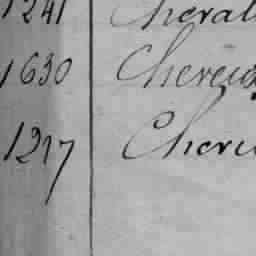 1241 Cheval
1630 Chereu
1217 Chere